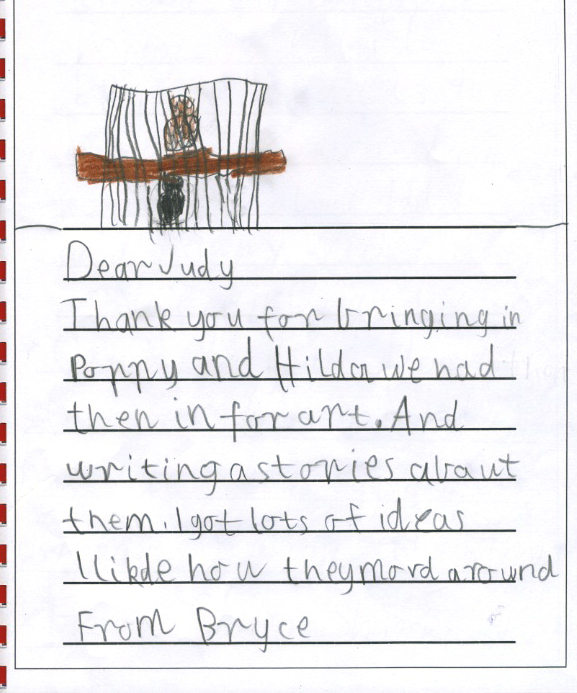 Dear Judy
Thank you for bringing in
Poppy and Hilda we had
then in for art. And
writing a stories about
them. I got lots of ideas
I likde how they mord around
From Bryce